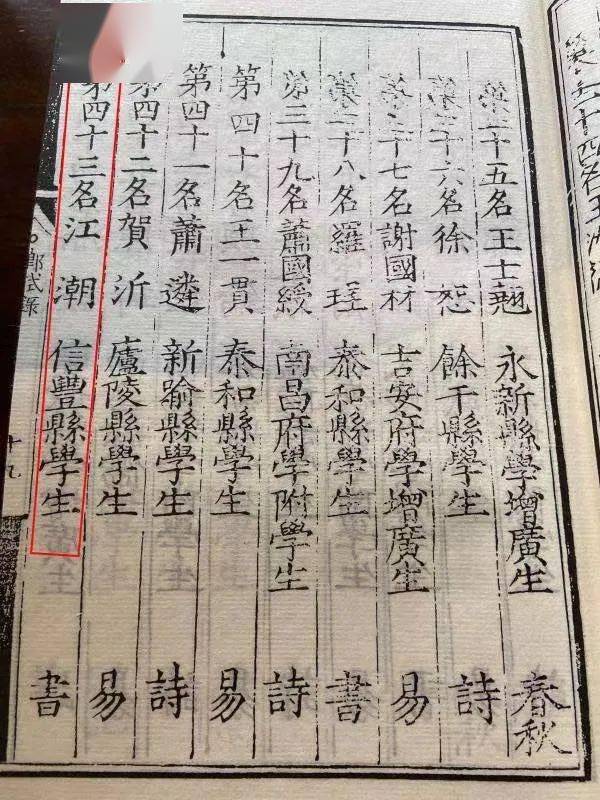 第三十五名王士翹 永新縣學增廣生 春秋
第三十六名徐恕 餘干縣學生 詩
第三十七名謝國材 吉安府學增廣生 易
第三十八名羅珵 泰和縣學生 書
第三十九名蕭國綬 南昌府學附學生 詩
第四十名王一貫 泰和縣學生 易
第四十一名蕭遴 新喻縣學生 詩
第四十二名賀沂 廬陵縣學生 易
第四十三名江潮 信豐縣學生 書
鄉試錄
十九